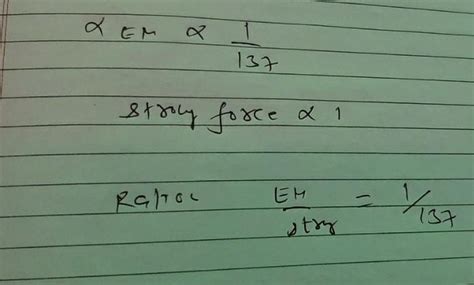 α EM α 1/137
strong force α 1
Ratio EM/strong = 1/137